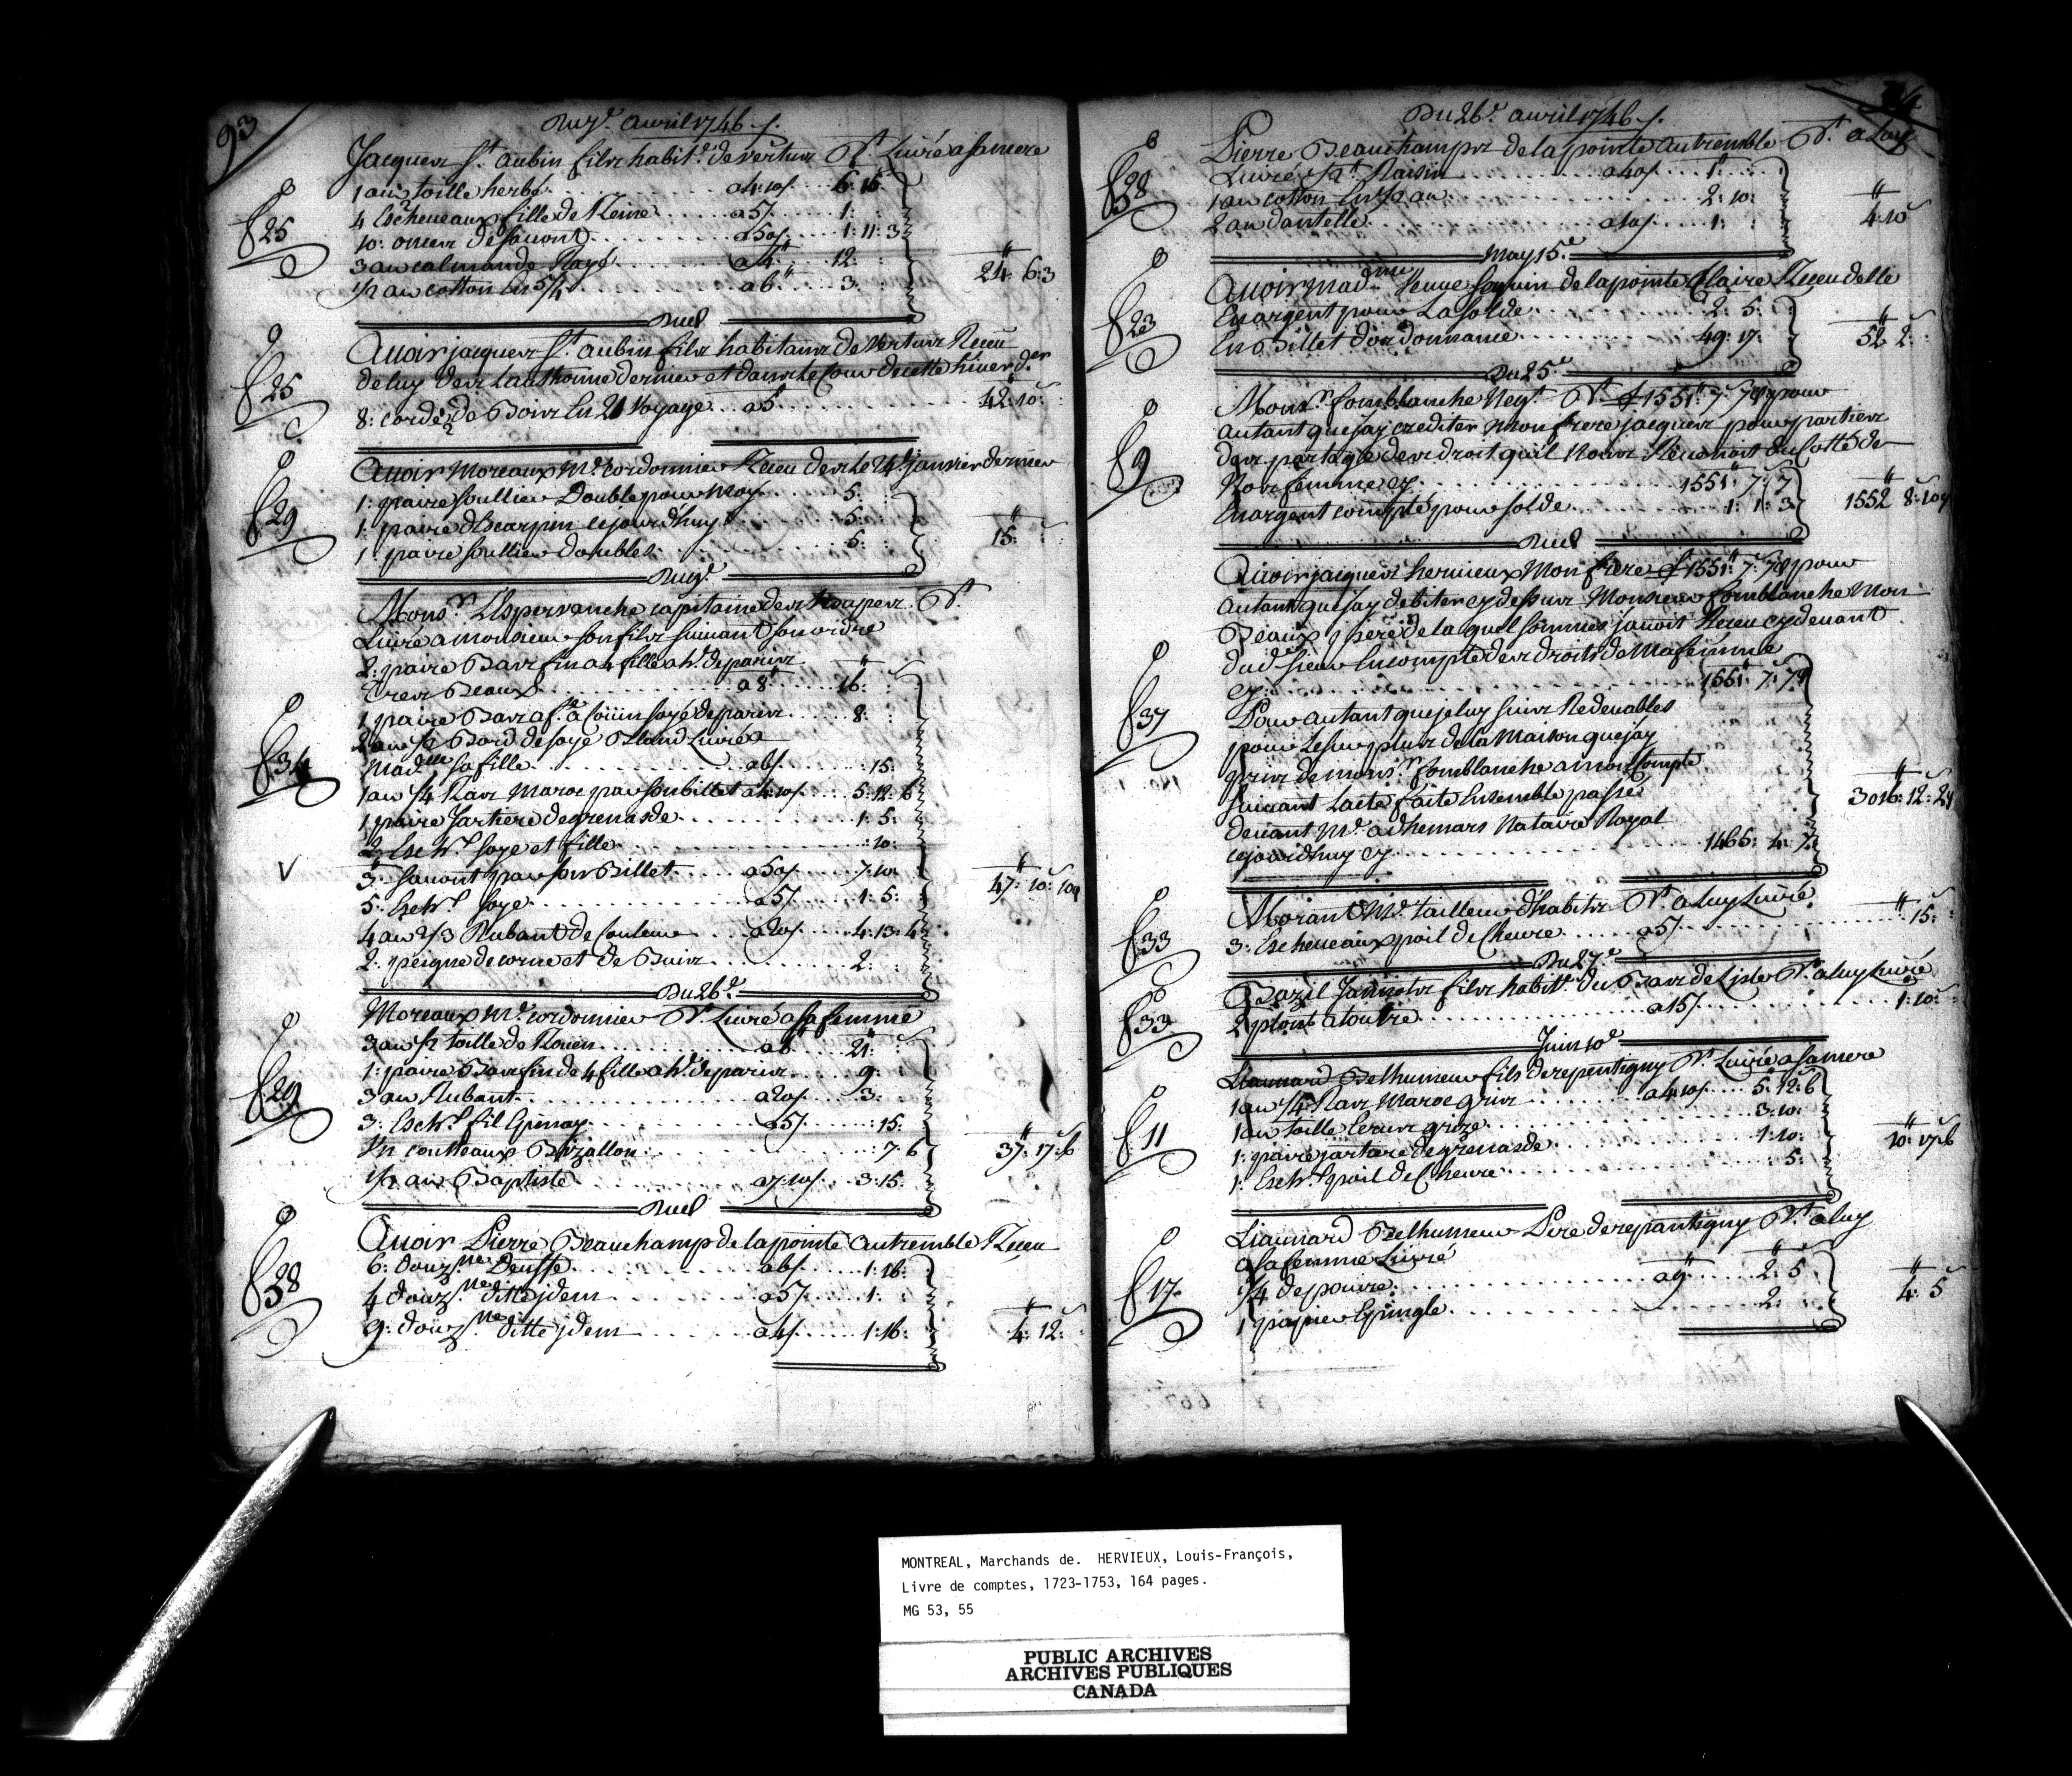 93
Du 9e. avril 1746 ./.
Jacques St. aubin fils habitt. de vertus Dt. Livré a sa mere
25
1 au½ toille herbé a 4:10s 6:15
4 Escheveaux fille de Reine a 5s 1:
10: onces de savont a 50s 1:11:3
3 au calmande Rayé a 4 12:
½ au cotton en 5/4 a 6 3:
24: 6:3
Dud
25
Avoir jacques St. aubin fils habitans de Vertus Receu
de luy des Lauthonne dernier et dans le Cour de cette hiver der
8: corde ½ de Bois En 21 Voyage a 5 42:10:
29
Avoir Moreaux Me. cordonnier Receu des le 24e janvier dernier
1: paire soullier Double pour Moy 5:
1: paire d'Escarpin cejourdhuy 5:
1: paire soullier doubles 5:
15:
Du 9e.
34
Monsr. L'Espervanche capitaine des troupes Dt.
Livré a monsieur son fils suivant son ordre
2: paire Bas fin a 4 fille a hd. de paris
tres Beaux a 8 16:
1 paire Bas a fe. a Coiiin soyé de paris 8:
2 au ½ Bord de soye Bland Livré a
Madelle sa fille a 6s :15:
1 au ¼ Ras Maroc par son billet a 4:10s 5:12:6
1 paire Jartiere de grenasde 1:5:
2: Eschr. soye et fille :10:
V
3: savont par son Billet a 50s 7:10:
5: Eschr. soye a 5s 1:5:
4 au 2/3 Rubant de Couleur a 20s 4:13:4
2: peigne de corne et de Buis 2:
47: 10: 10d
Du 26e.
29
Moreaux Me. cordonnier Dt. Livré a sa femme
3 au ½ toille de Rouen a 6 21:
1: paire Bas fin de 4 fille a hd. de paris 9:
3 au Rubant a 20s 3:
3: Eschr. fil Epinay a 5s :15:
Un coutteaux Bizallon :7:6
½ au Baptiste a 7:10s 3:15:
37: 17:6
Dud
38
Avoir Pierre Beauchamp de la pointe autremble Receu
6: douzne. Deuffe a 6s 1:16:
4 douzne. ditte jdem a 5s 1:
9: douzne. ditte jdem a 4s 1:16:
4: 12:
Du 26e. avril 1746 ./.
38
Pierre Beauchamps de la pointe autremble Dt. a Luy
Livré Raisin a 40s 1:
1 au cotton En ¾ au 2:10:
2 au dantelle a 10s 1:
4:10
May 15e.
23
Avoir Madme Veuve de la pointe Claire Receu delle
En argent pour La solde 2: 5:
En Billet dordonnance 49: 17:
52 2:
Du 25e.
9
Monsr. fomblanche Negt. Dt. 1551: 7: 7d pour
autant que jay crediter Mon frere jacques pour parties
des partage des droit quil Nous Revenoit du Cotté de
Nos femme cy 1551: 7: 7
En argent compté pour solde 1: 1: 3
1552 8:10d
Dud
37
Avoir jacques hervieux Mon frere 1551: 7: 7d pour
autant que jay debiter cy dessus Monsieur fomblanche Mon
Beaux pere de la quel sommes javois Receu cy devant
dud. sieur En compte des droits de Ma femme
cy 1551: 7: 7d
Pour autant que je luy suis Redevables
pour Le surplus de la Maison que jay
pris de monsr. fomblanche a mon Compte
suivant Lacte faite Ensemble passé
devant Me. adhemars Nataire Royal
cejourdhuy cy 1465: 4: 7
3016: 12: 2d
33
Morant Me. tailleur dhabits Dt. a Luy Livré
3: Escheveaux poil de Chevre a 5s :15:
Du 27e.
39
Bazil Janots fils habitt. du Bas de Lisle Dt. a luy Livré
2 plont a toutre a 15s 1:10:
Juin 10e
11
Lianard Delhumeur fils de repentigny Dt. Livré a sa mere
1 au ¼ Ras Maroc gris a 4:10s 5:12:6
1 au toille Ecrue grize 3:10:
1: paire jartiere de grenasde 1:10:
1: Eschr. poil de Chevre :5:
10: 17:6
17
Lianard Delhumeur Pere de repantigny Dt. a luy
a sa femme Livré
¼ de pouvre a 9 2: 5
1 papier Epingle 2:
4: 5
MONTREAL, Marchands de. HERVIEUX, Louis-François,
Livre de comptes, 1723-1753, 164 pages.
MG 53, 55
PUBLIC ARCHIVES
ARCHIVES PUBLIQUES
CANADA